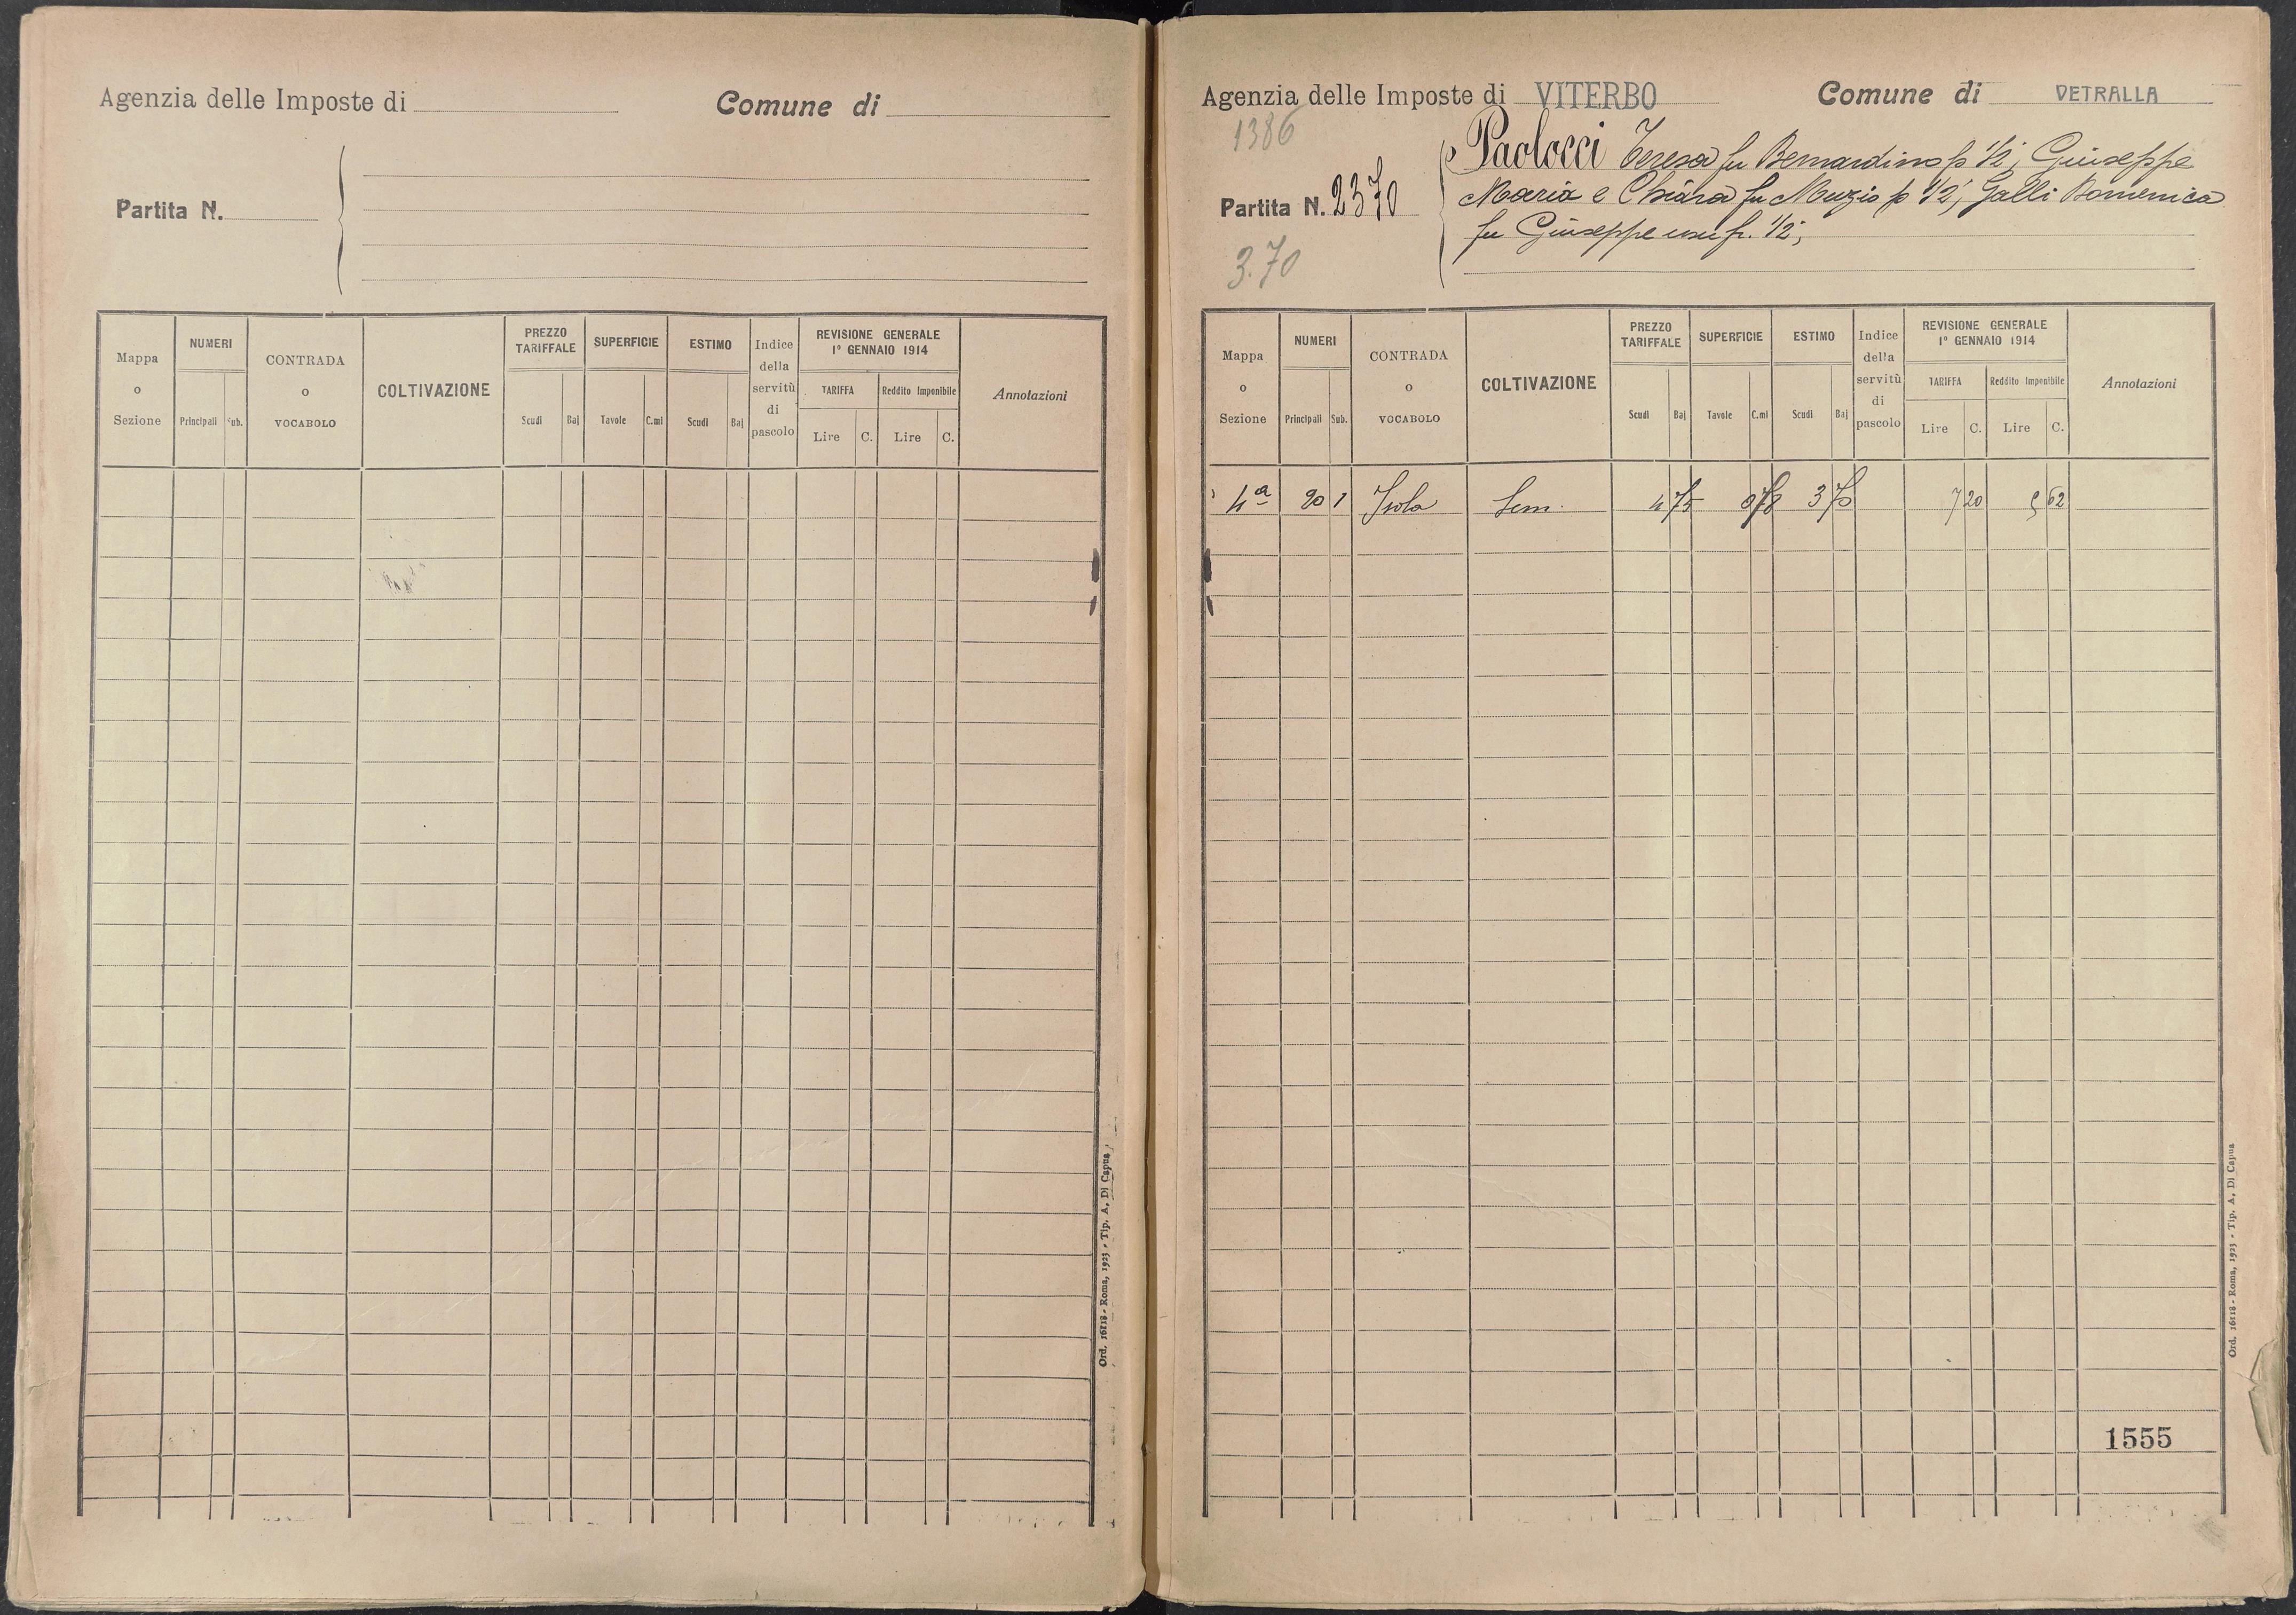 Agenzia delle Imposte di
Comune di
Partita N.
Mappa o Sezione
NUMERI
Principali
Sub.
CONTRADA o VOCABOLO
COLTIVAZIONE
PREZZO TARIFFALE
Scudi
Baj
SUPERFICIE
Tavole
C.mi
ESTIMO
Scudi
Baj
Indice della servitù di pascolo
REVISIONE GENERALE
1° GENNAIO 1914
TARIFFA
Reddito Imponibile
Lire
C.
Lire
C.
Annotazioni
Ord. 16118 - Roma, 1923 - Tip. A. Di Capua
Agenzia delle Imposte di VITERBO
Comune di VETRALLA
1386
Partita N. 2370
3.70
Paolocci Teresa fu Bernardino p 1/2; Giuseppe
Maria e Chiara fu Muzio p 1/2; Galli Domenica
fu Giuseppe usufr. 1/2;
Mappa o Sezione
NUMERI
Principali
Sub.
CONTRADA o VOCABOLO
COLTIVAZIONE
PREZZO TARIFFALE
Scudi
Baj
SUPERFICIE
Tavole
C.mi
ESTIMO
Scudi
Baj
Indice della servitù di pascolo
REVISIONE GENERALE
1° GENNAIO 1914
TARIFFA
Reddito Imponibile
Lire
C.
Lire
C.
Annotazioni
4a 20 1 Isola Sem. 4 75 0 78 3 70 7 20 5 62
1555
Ord. 16118 - Roma, 1923 - Tip. A. Di Capua